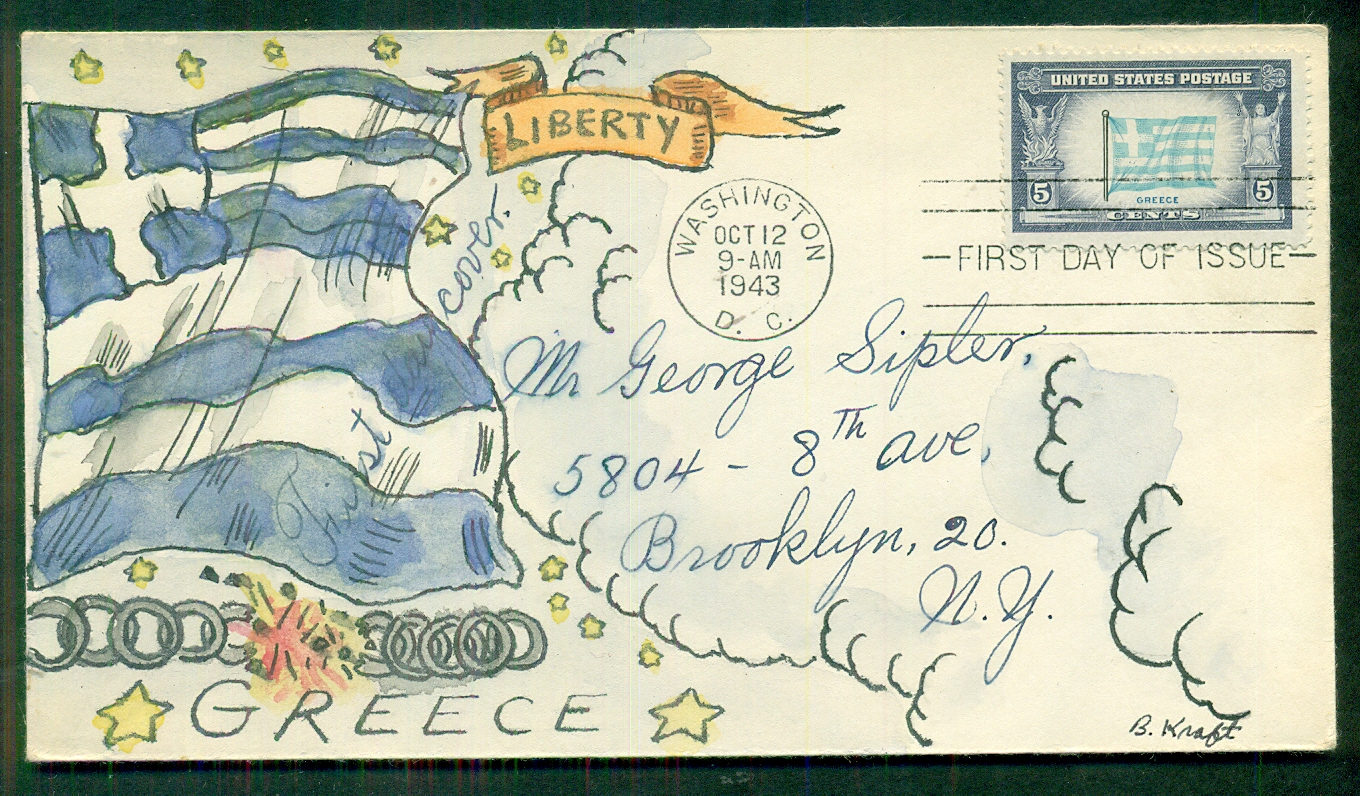 LIBERTY
UNITED STATES POSTAGE
5
5
GREECE
CENTS
WASHINGTON
OCT 12
9-AM
1943
D. C.
FIRST DAY OF ISSUE
First Day cover.
Mr George Sipler,
5804 - 8TH ave,
Brooklyn, 20.
N.Y.
GREECE
B. Kraft